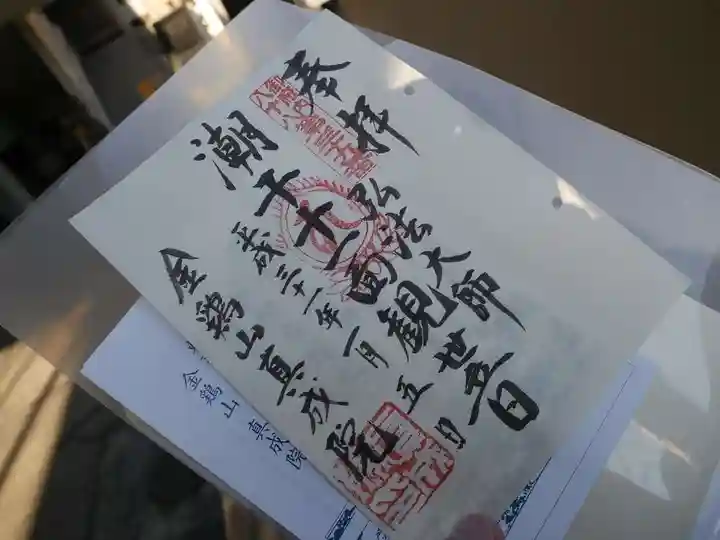 奉拝
弘法大師
潮干十一面観世音
平成三十一年一月五日
金鶏山真成院
金鶏山 真成院